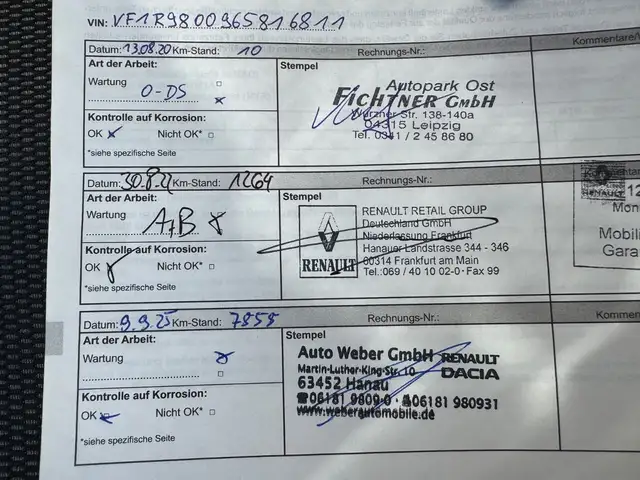 VIN: VF1R9800965816811
Kommentare/
Datum: 13.08.20 Km-Stand: 10 Rechnungs-Nr.:
Art der Arbeit: Stempel
Wartung
O-DS
Kontrolle auf Korrosion:
OK Nicht OK*
*siehe spezifische Seite
Autopark Ost
FICHTNER GmbH
Wurzner Str. 138-140a
04315 Leipzig
Tel. 0341 / 2 45 86 80
Datum: 30.8.21 Km-Stand: 1264 Rechnungs-Nr.:
Art der Arbeit: Stempel
Wartung A+B
Kontrolle auf Korrosion:
OK Nicht OK*
*siehe spezifische Seite
RENAULT
RENAULT RETAIL GROUP
Deutschland GmbH
Niederlassung Frankfurt
Hanauer Landstrasse 344 - 346
60314 Frankfurt am Main
Tel.:069 / 40 10 02-0 · Fax 99
RENAULT 12
Mon
Mobili
Gara
Datum: 9.9.25 Km-Stand: 7858 Rechnungs-Nr.:
Kommen
Art der Arbeit: Stempel
Wartung
Kontrolle auf Korrosion:
OK Nicht OK*
*siehe spezifische Seite
Auto Weber GmbH RENAULT
Martin-Luther-King-Str. 10 DACIA
63452 Hanau
☎06181 9809-0 · 06181 980931
www.weberautomobile.de